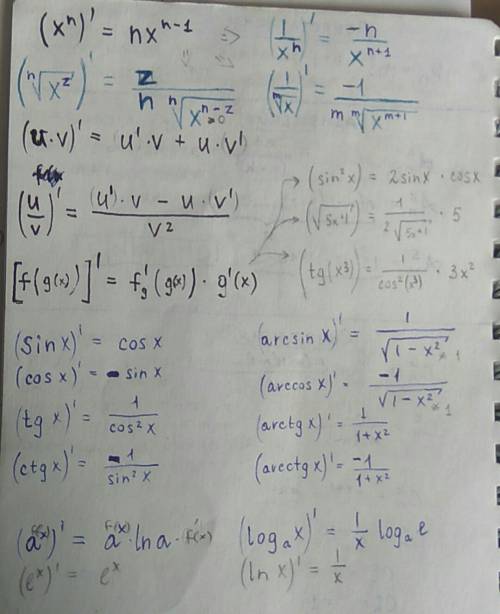 (xⁿ)' = nxⁿ⁻¹ => (1/xⁿ)' = -n/xⁿ⁺¹
(ⁿ√xᶻ)' = z/(n ⁿ√xⁿ⁻ᶻ) (1/ᵐ√x)' = -1/(m ᵐ√xᵐ⁺¹)
(u·v)' = u'·v + u·v'
(u/v)' = ((u')·v - u·(v'))/v² (sin²x) = 2sinx · cosx
(√5x+1')' = 1/(2√5x+1) · 5
[f(g(x))]' = f'g(g(x)) · g'(x) (tg(x³))' = 1/cos²(x³) · 3x²
(sin x)' = cos x (arcsin x)' = 1/√1-x²
(cos x)' = - sin x (arccos x)' = -1/√1-x²
(tg x)' = 1/cos²x (arctg x)' = 1/1+x²
(ctg x)' = -1/sin²x (arcctg x)' = -1/1+x²
(aᶠ⁽ˣ⁾)' = aᶠ⁽ˣ⁾ · ln a · f'(x) (logₐx)' = 1/x logₐe
(eˣ)' = eˣ (ln x)' = 1/x